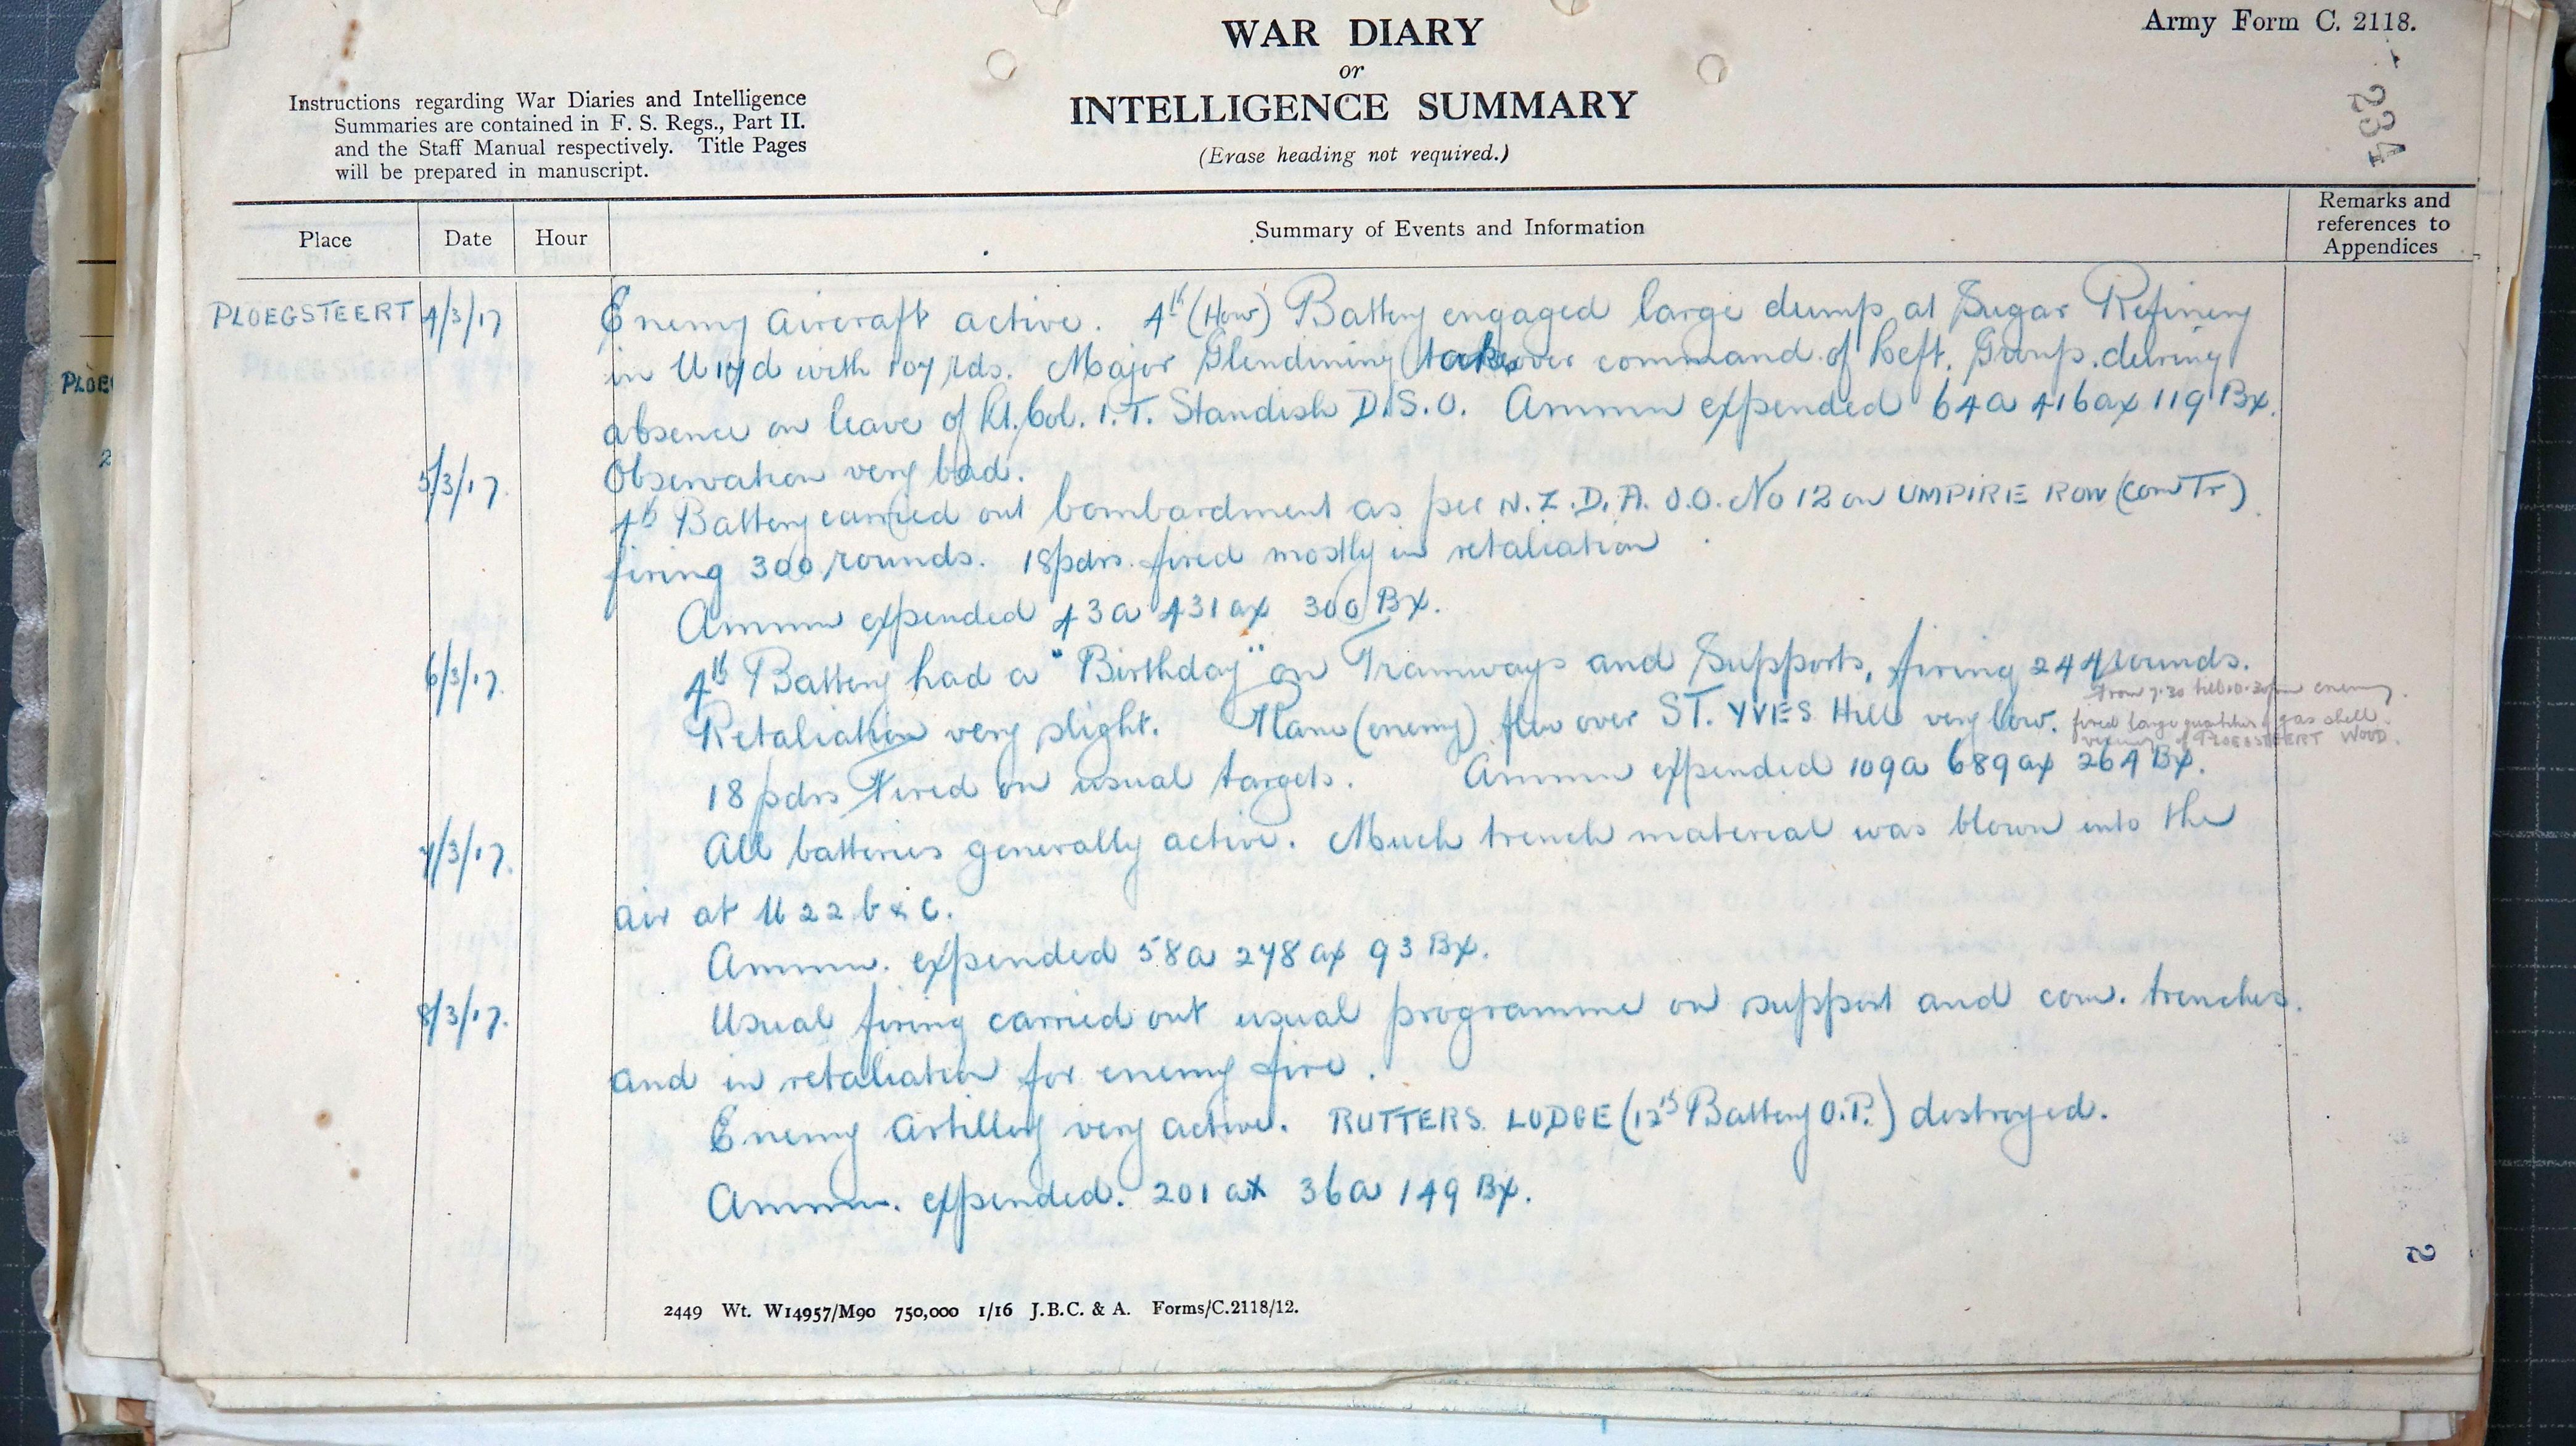 WAR DIARY
or
INTELLIGENCE SUMMARY
(Erase heading not required.)
Army Form C. 2118.
234
Instructions regarding War Diaries and Intelligence
Summaries are contained in F. S. Regs., Part II.
and the Staff Manual respectively. Title Pages
will be prepared in manuscript.
Place Date Hour Summary of Events and Information Remarks and references to Appendices
PLOEGSTEERT 4/3/17 Enemy Aircraft active. 4th (How) Battery engaged large dump at Sugar Refinery
in U 17 d with 107 rds. Major Glendining takes over command of Left. Group. during
absence on leave of Lt. Col. I.T. Standish D.S.O. Ammn expended 64a 416ax 119 Bx.
5/3/17. Observation very bad.
4th Battery carried out bombardment as per N.Z.D.A. O.O. No 12 on UMPIRE ROW (Com Tr)
firing 300 rounds. 18pdrs. fired mostly in retaliation
Ammn expended 43a 431ax 300 Bx.
6/3/17. 4th Battery had a "Birthday" on Tramways and Supports, firing 244 rounds.
Retaliation very slight. Plane (enemy) flew over ST. YVES Hill very low.
From 7.30 till 10.30pm enemy
fired large quantities of gas shell
vicinity of PLOEGSTEERT WOOD.
18 pdrs fired on usual targets. Ammn expended 109a 689ax 264 Bx.
7/3/17. All batteries generally active. Much trench material was blown into the
air at U 22 b & c.
Ammn. expended 58a 278ax 93 Bx.
8/3/17. Usual firing carried out usual programme on support and com. trenches.
and in retaliation for enemy fire.
Enemy Artillery very active. RUTTERS LODGE (12th Battery O.P.) destroyed.
Ammn. expended. 201 ax 36a 149 Bx.
2
2449 Wt. W14957/M90 750,000 1/16 J.B.C. & A. Forms/C.2118/12.